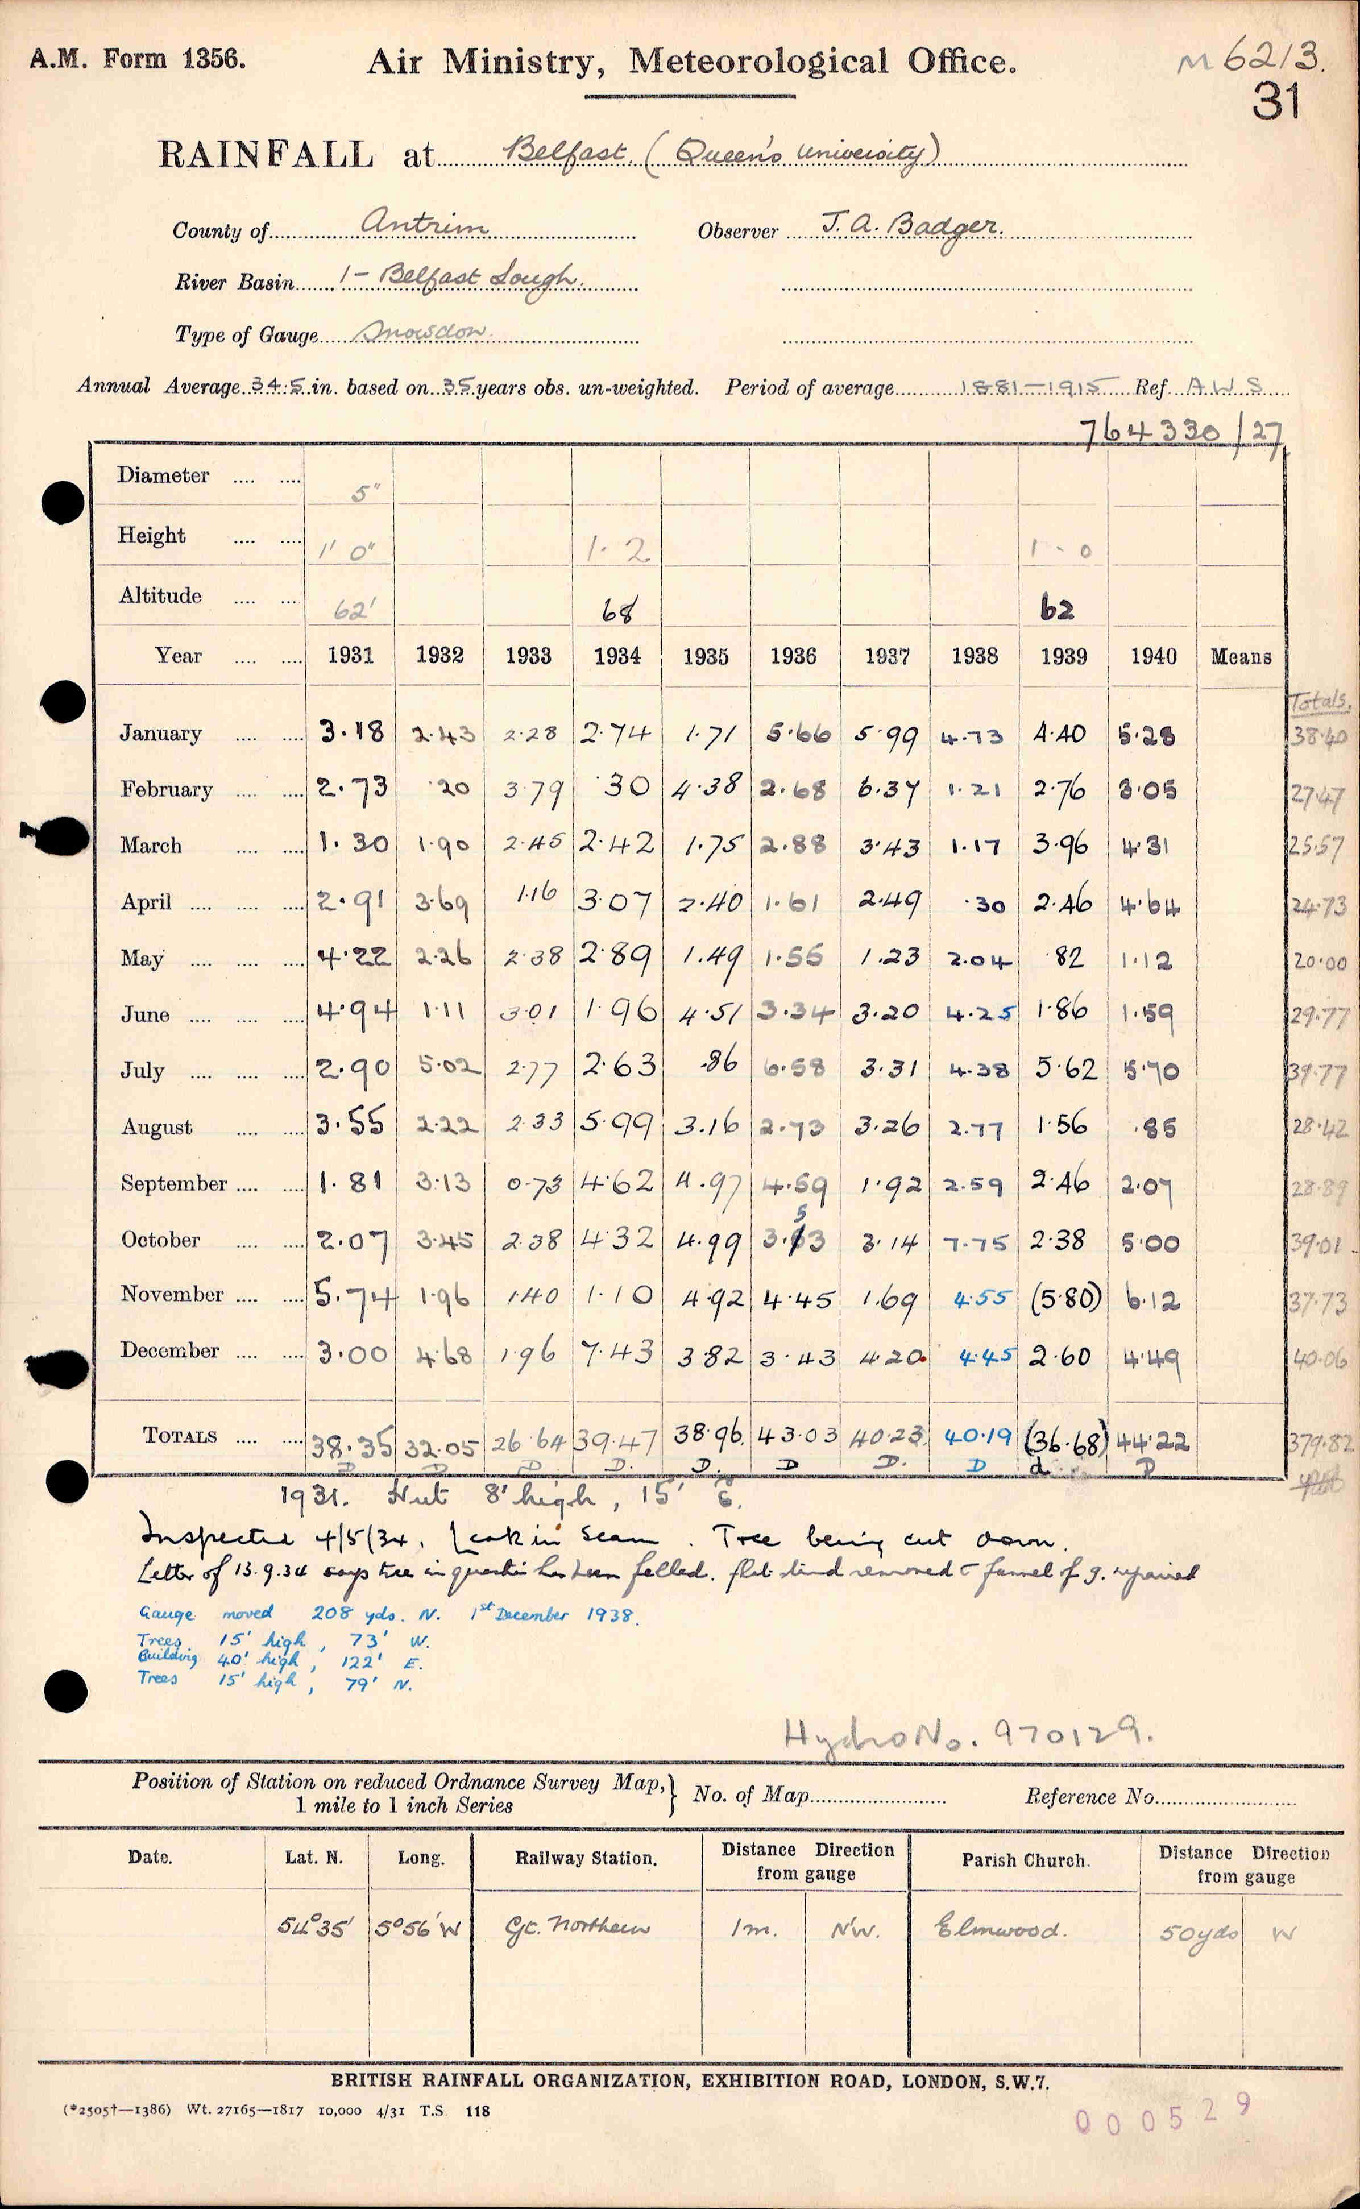 A.M. Form 1356. Air Ministry, Meteorological Office. M 6213.
31
RAINFALL at Belfast. (Queen's University)
County of Antrim Observer J. A. Badger.
River Basin 1 - Belfast Lough.
Type of Gauge Snowdon.
Annual Average 34.5 in. based on 35 years obs. un-weighted. Period of average 1881-1915 Ref. A W S
764330/27
Diameter .... .... 5"
Height .... .... 1' 0" 1. 2 1 - 0
Altitude .... .... 62' 68 62
Year .... .... 1931 1932 1933 1934 1935 1936 1937 1938 1939 1940 Means
Totals.
January .... .... 3.18 2.43 2.28 2.74 1.71 5.66 5.99 4.73 4.40 5.28 38.40
February .... .... 2.73 .20 3.79 .30 4.38 2.68 6.37 1.21 2.76 3.05 27.47
March .... .... 1.30 1.90 2.45 2.42 1.75 2.88 3.43 1.17 3.96 4.31 25.57
April .... .... .... 2.91 3.69 1.16 3.07 2.40 1.61 2.49 .30 2.46 4.64 24.73
May .... .... .... 4.22 2.26 2.38 2.89 1.49 1.55 1.23 2.04 .82 1.12 20.00
June .... .... .... 4.94 1.11 3.01 1.96 4.51 3.34 3.20 4.25 1.86 1.59 29.77
July .... .... .... 2.90 5.02 2.77 2.63 .86 6.58 3.31 4.38 5.62 5.70 39.77
August .... .... 3.55 2.22 2.33 5.99 3.16 2.73 3.26 2.77 1.56 .85 28.42
September .... .... 1.81 3.13 0.73 4.62 4.97 4.59 1.92 2.59 2.46 2.07 28.89
October .... .... 2.07 3.45 2.38 4.32 4.99 3.53 3.14 7.75 2.38 5.00 39.01
November .... .... 5.74 1.96 1.40 1.10 4.92 4.45 1.69 4.55 (5.80) 6.12 37.73
December .... .... 3.00 4.68 1.96 7.43 3.82 3.43 4.20 4.45 2.60 4.49 40.06
TOTALS .... .... 38.35 32.05 26.64 39.47 38.96 43.03 40.23 40.19 (36.68) 44.22 379.82
D D D D. D. D D. D d D
1931. Hut 8' high, 15' E.
Inspected 4/5/34. Leak in seam. Tree being cut down.
Letter of 13.9.34 says tree in question has been felled. removed & funnel of g. repaired
Gauge moved 208 yds. N. 1st December 1938.
Trees 15' high, 73' W.
Building 40' high, 122' E.
Trees 15' high, 79' N.
Hydro No. 970129.
Position of Station on reduced Ordnance Survey Map, } No. of Map Reference No.
1 mile to 1 inch Series
Date. Lat. N. Long. Railway Station. Distance Direction from gauge Parish Church. Distance Direction from gauge
54°35' 5°56'W Gt. Northern 1m. NW. Elmwood. 50yds W
BRITISH RAINFALL ORGANIZATION, EXHIBITION ROAD, LONDON, S.W.7.
(*2505†—1386) Wt. 27165—1817 10,000 4/31 T.S. 118
000529